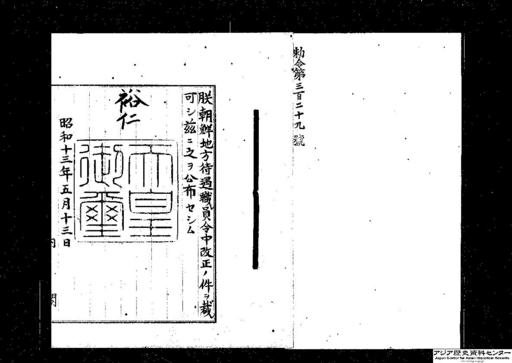 勅令第三百二十九號
朕朝鮮地方待遇職員令中改正ノ件ヲ裁
可シ茲ニ之ヲ公布セシム
裕仁
天皇
御璽
昭和十三年五月十三日
内閣
アジア歴史資料センター
Japan Center for Asian Historical Records